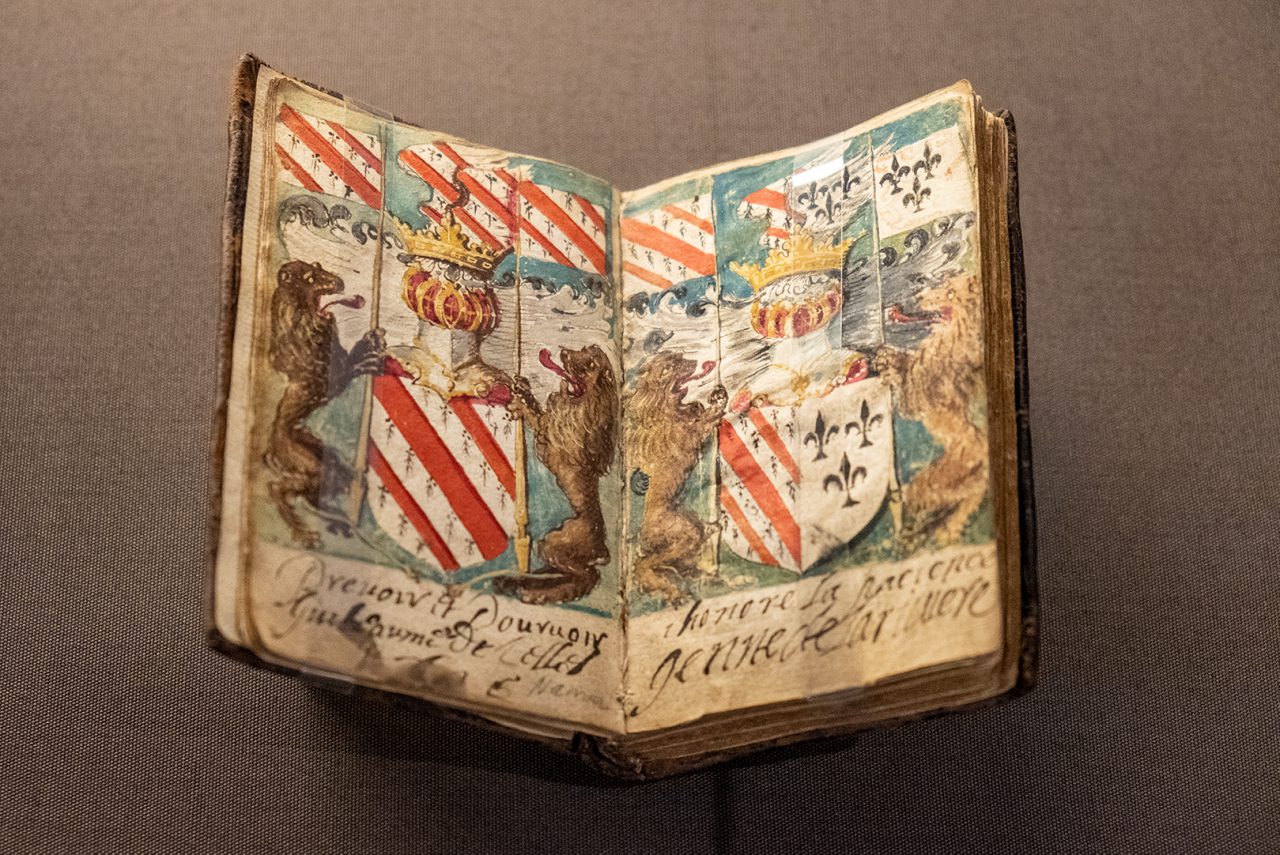 Preuoir & Pouruoir
Guillaume De Celles
ihonore la pacience
genne de lariuere